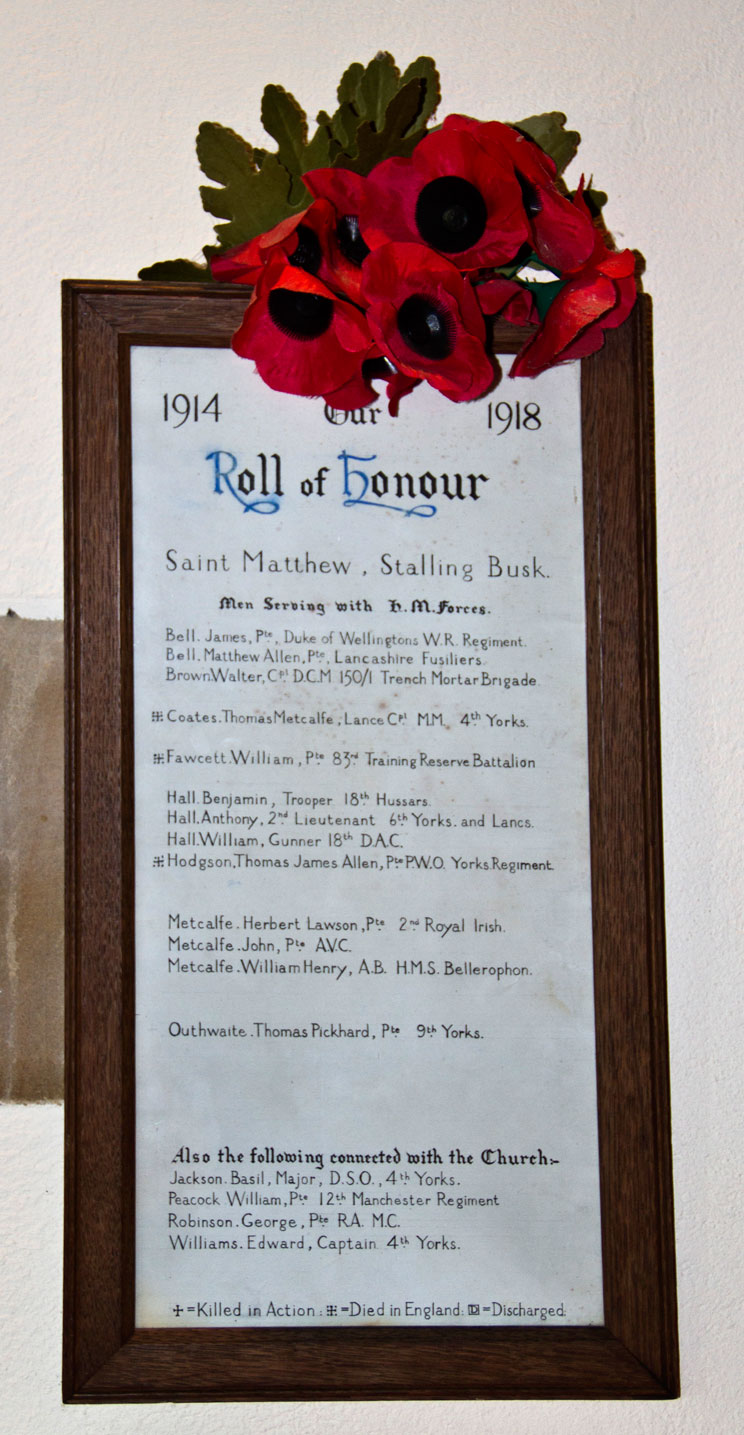 1914 Our 1918
Roll of Honour
Saint Matthew, Stalling Busk.
Men Serving with H.M.Forces.
Bell. James, Pte, Duke of Wellingtons W.R. Regiment.
Bell. Matthew Allen, Pte, Lancashire Fusiliers.
Brown. Walter, Cpl D.C.M 150/1 Trench Mortar Brigade.
⁜ Coates. Thomas Metcalfe, Lance Cpl M.M. 4th Yorks.
⁜ Fawcett. William, Pte 83rd Training Reserve Battalion
Hall. Benjamin, Trooper 18th Hussars.
Hall. Anthony, 2nd Lieutenant 6th Yorks. and Lancs.
Hall. William, Gunner 18th D.A.C.
⁜ Hodgson. Thomas James Allen, Pte P.W.O. Yorks. Regiment.
Metcalfe. Herbert Lawson, Pte 2nd Royal Irish.
Metcalfe. John, Pte A.V.C.
Metcalfe. William Henry, A.B. H.M.S. Bellerophon.
Outhwaite. Thomas Pickhard, Pte 9th Yorks.
Also the following connected with the Church:-
Jackson. Basil, Major, D.S.O., 4th Yorks.
Peacock William, Pte 12th Manchester Regiment
Robinson. George, Pte R.A. M.C.
Williams. Edward, Captain 4th Yorks.
✢ = Killed in Action: ⁜ = Died in England: D = Discharged: